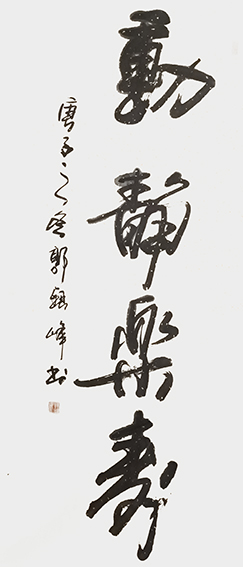 動靜樂壽
庚子之春郭銀峰書